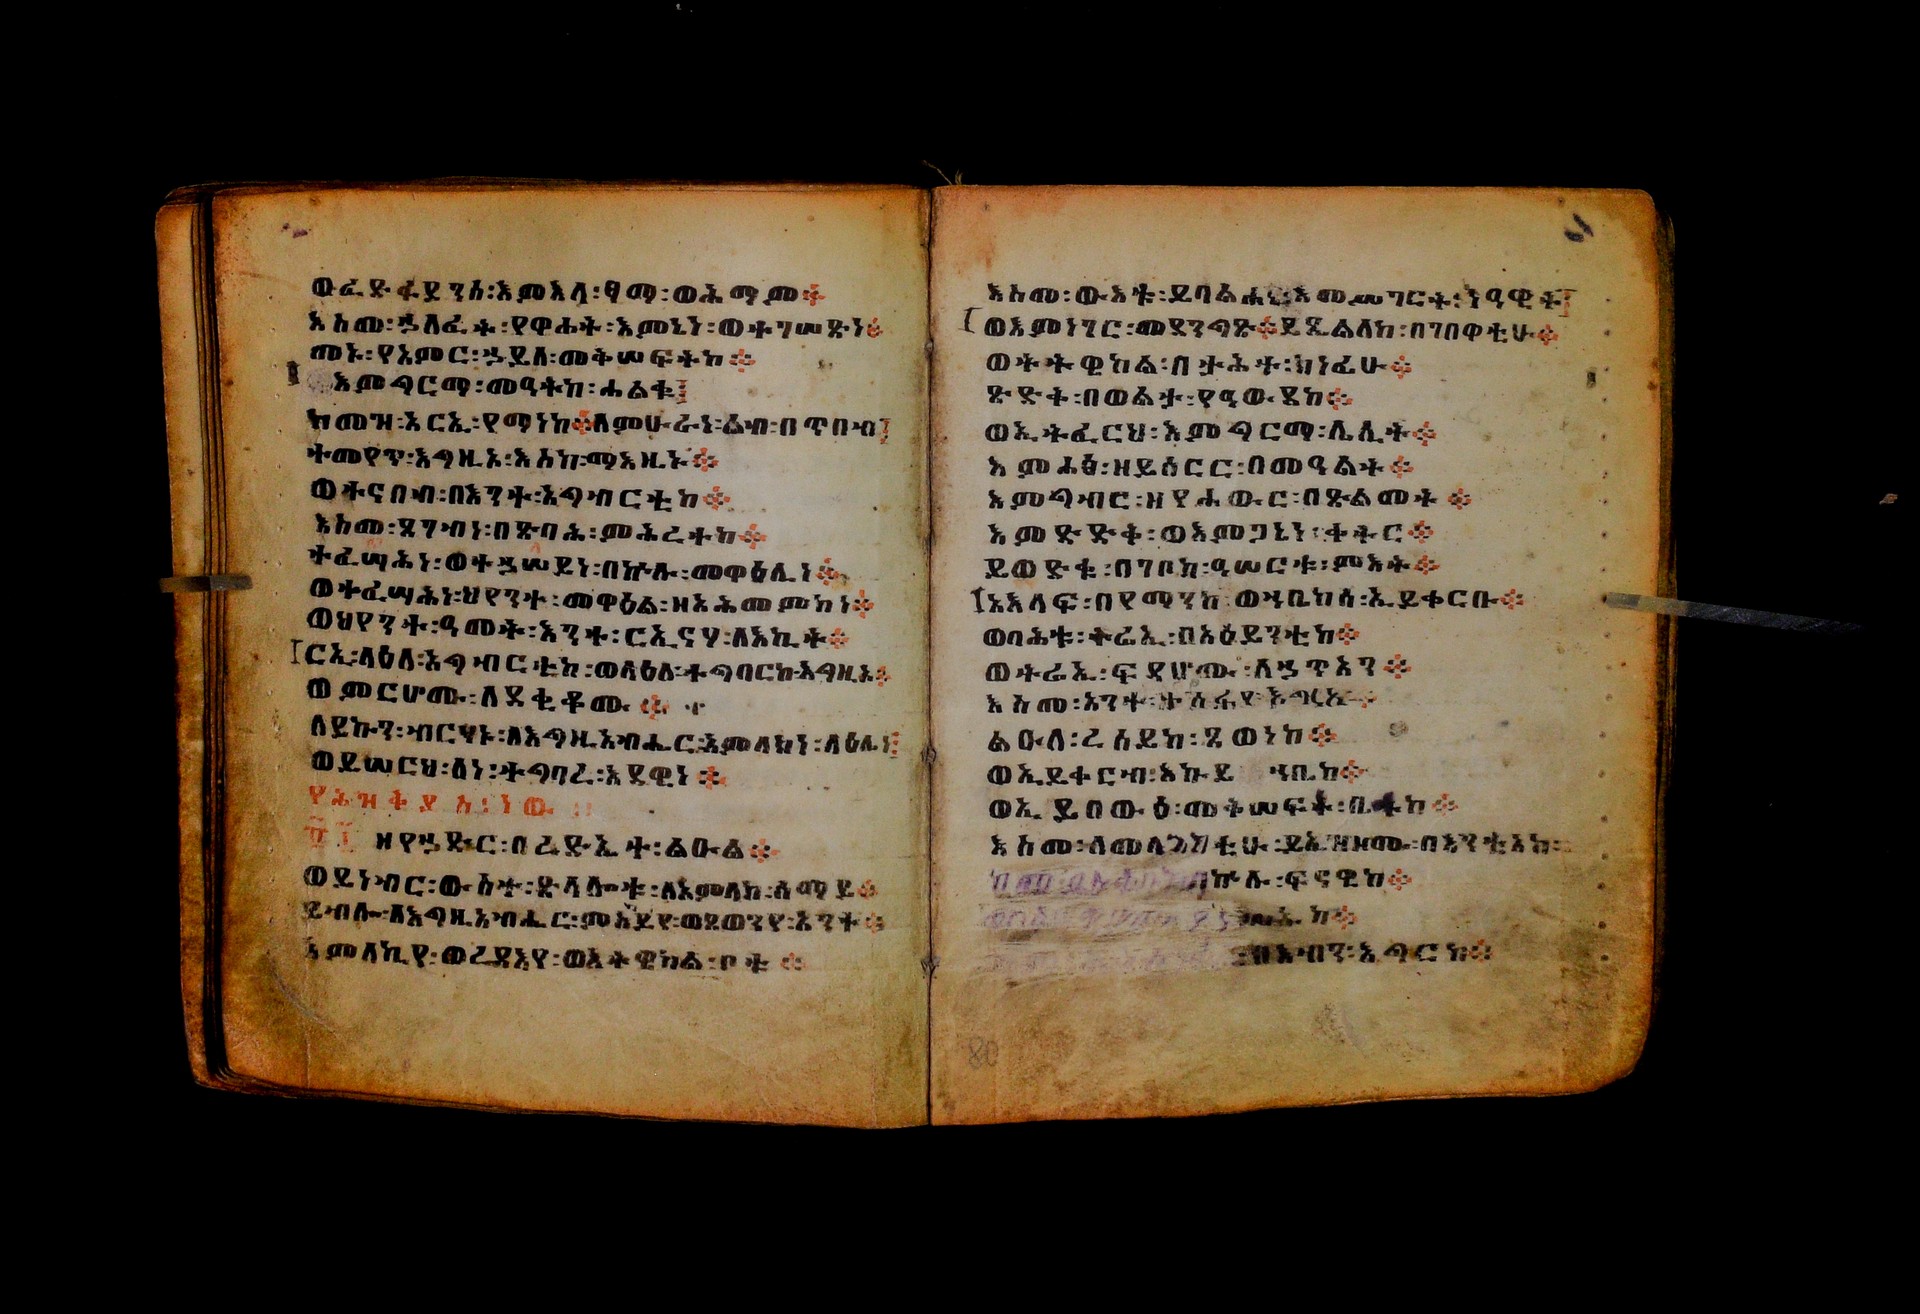 ወፈድፋደንሰ፡እምእላ፡ፃማ፡ወሕማም፨
እስመ፡ኀለፈት፡የዋሐት፡እምኔነ፡ወተገሠጽነ፨
መኑ፡የአምር፡ኀይለ፡መቅሠፍትከ፨
እምግርማ፡መዓትከ፡ሐልቁ፤
ከመዝ፡አርኢ፡የማነከ፨ለምሁራነ፡ልብ፡በጥበብ፤
ተመየጥ፡እግዚኦ፡እስከ፡ማእዜኑ፨
ወትናበብ፡በእንተ፡አግብርቲከ፨
እስመ፡ጸገብነ፡በጽባሕ፡ምሕረተከ፨
ተፈሣሕነ፡ወተኀሠይነ፡በኵሉ፡መዋዕሊነ፨
ወተፈሣሕነ፡ህየንተ፡መዋዕል፡ዘአሕመምከነ፨
ወህየንተ፡ዓመት፡እንተ፡ርኢናሃ፡ለእኪት፨
ርኢ፡ላዕለ፡አግብርቲከ፡ወላዕለ፡ተግባርከ፡እግዚኦ፨
ወምርሆሙ፡ለደቂቆሙ፨
ለይኩን፡ብርሃኑ፡ለእግዚአብሔር፡አምላክነ፡ላዕሌነ፤
ወይሠርህ፡ለነ፡ተግባረ፡እደዊነ፨
ዘየኀድር፡በረድኤተ፡ልዑል፨
ወይነብር፡ውስተ፡ጽላሎቱ፡ለአምላከ፡ሰማይ፨
ይብሎ፡ለእግዚአብሔር፡ምስካይየ፡ወጸወንየ፡አንተ፨
አምላኪየ፡ወረዳእየ፡ወእትዌከል፡ቦቱ፨
እስመ፡ውእቱ፡ይባልሐኒ፡እመሥገርት፡ነዓዊት፤
ወእምነገር፡መደንግጽ፨ይጼልለከ፡በገበዋቲሁ፨
ወትትዌከል፡በታሕተ፡ክነፊሁ፨
ጽድቅ፡በወልታ፡የዓውደከ፨
ወኢትፈርህ፡እምግርማ፡ሌሊት፨
እምሐፅ፡ዘይሰርር፡በመዓልት፨
እምግብር፡ዘየሐውር፡በጽልመት፨
እምጽድቅ፡ወእምጋኔነ፡ቀትር፨
ይወድቁ፡በገቦከ፡ዓሠርቱ፡ምእት፨
አእላፍ፡በየማንከ፡ወኀቤከሰ፡ኢይቀርቡ፨
ወባሕቱ፡ትሬኢ፡በአዕይንቲከ፨
ወትሬኢ፡ፍዳሆሙ፡ለኃጥአን፨
እስመ፡አንተ፡
ልዑለ፡ረሰይከ፡ጸወነከ፨
ወኢይቀርብ፡እኩይ፡ኀቤከ፨
ወኢይበውዕ፡መቅሠፍት፡ቤተከ፨
እስመ፡ለመላእክቲሁ፡ይኤዝዞሙ፡በእንቲአከ፡
በኵሉ፡ፍናዊከ፨
በእብን፡እግርከ፨